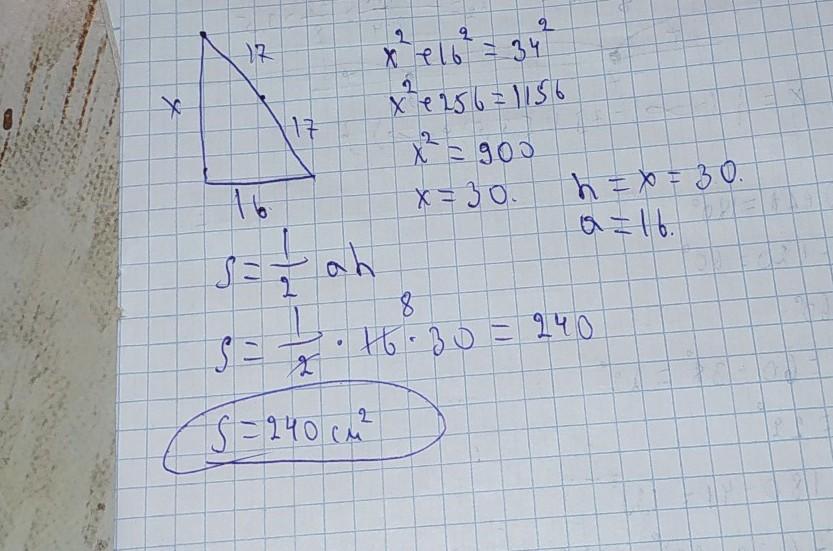 17
x
17
16
x² + 16² = 34²
x² + 256 = 1156
x² = 900
x = 30.
h = x = 30.
a = 16.
S = 1/2 ah
S = 1/2 · 16 · 30 = 240
8
S = 240 см²